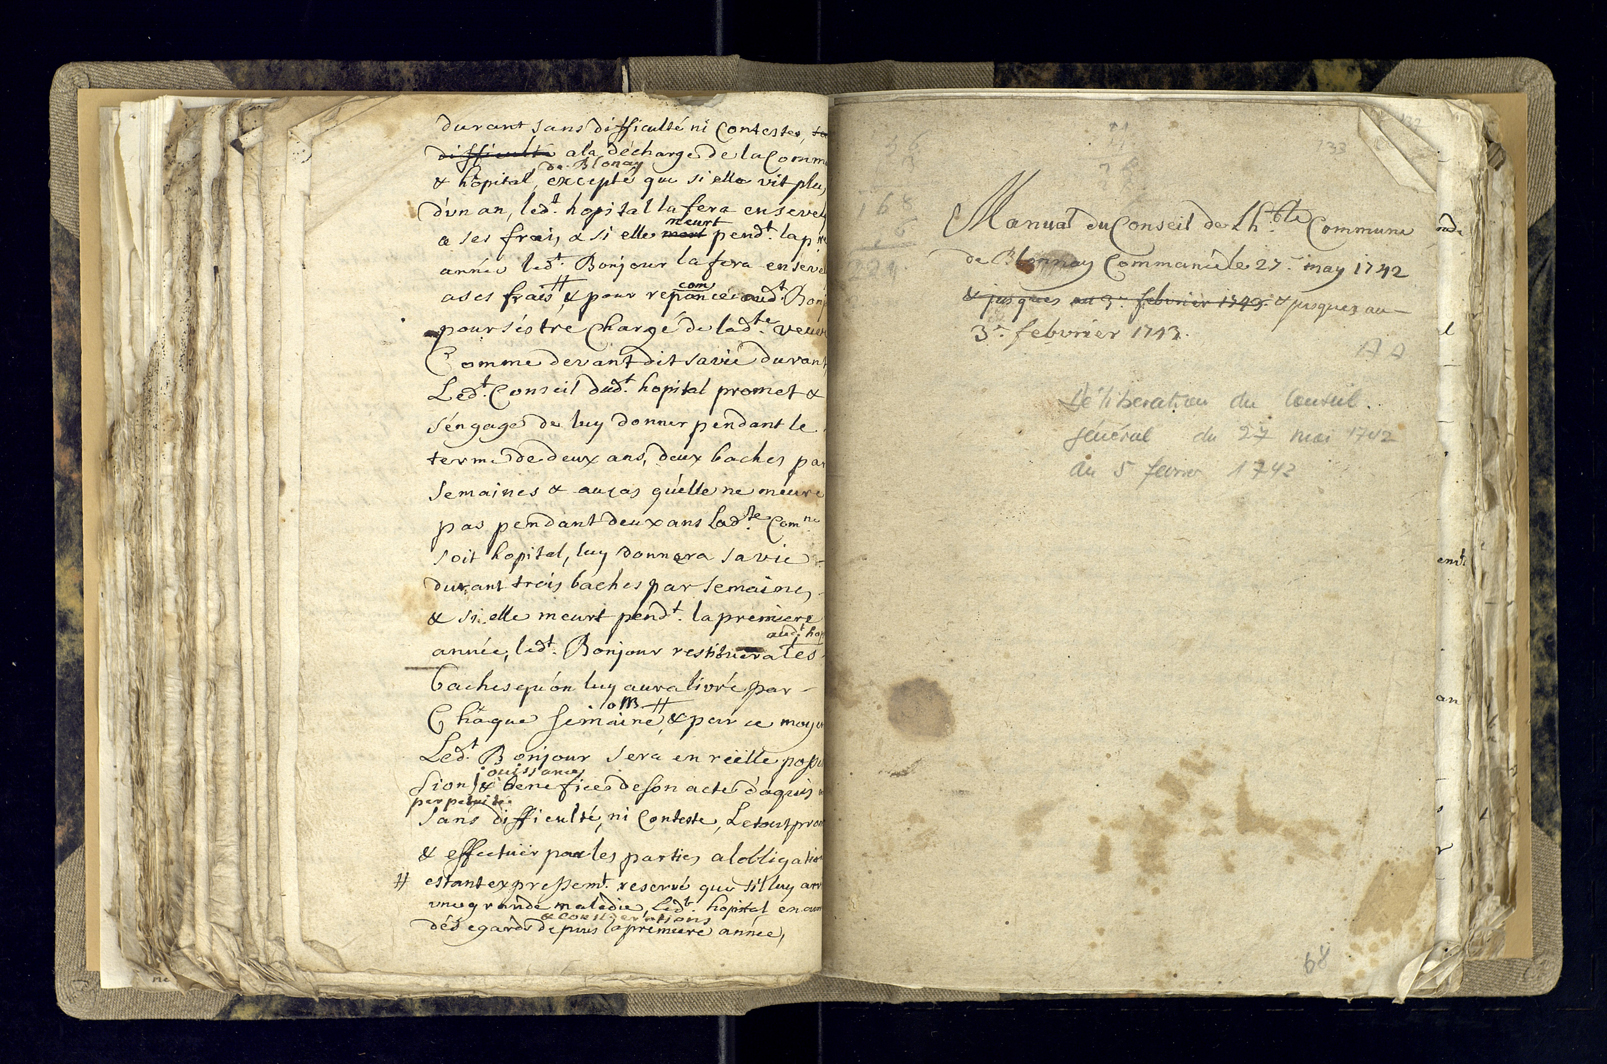 durant sans difficulté ni Conteste,
difficulté a la décharge de la Comm
de Blonay
& hôpital, excepté que si elle vit plus
d'un an, led.t hopital la fera ensevel
meurt
a ses frais, & si elle mort pend.t la pre
année led.t Bonjour la fera ensevel
com
a ses frais # & pour repance aud.t Bonj
pour s'éstre Chargé de lad.te veuve
Comme devant dit sa vie durant
Led.t Conseil dud.t hopital promet &
s'éngage de luy donner pendant le
terme de deux ans, deux baches par
semaines & au cas qu'elle ne meure
pas pendant deux ans lad.te Com.ne
soit hopital, luy donnera sa vie
durant trois baches par semaine,
& si elle meurt pend.t la premiere
aud.t hop
année, led.t Bonjour restituera les
baches qu'on luy aura livré par
Chaque semaine, # & par ce moye
Led.t Bonjour sera en reëlle posses
jouissance
sion & benefice de son acte d'aquis
perpetuite.
sans difficulté, ni Conteste, Le tout prom
& effectuër par les parties a l'obligation
# estant expressem.t reservé que s'il luy arr
une grande maladie, led.t hopital en aura
& considerations
dés egards depuis la premiere année,
133
168
Manual du Conseil de Lh.ble Commune
de Blonnay Commancé le 27.e may 1742
& jusques au 3.e febvrier 1743. & jusques au
3.e febvrier 1743.
Délibération du Conseil
général du 27 mai 1742
au 5 fevrier 1742
68